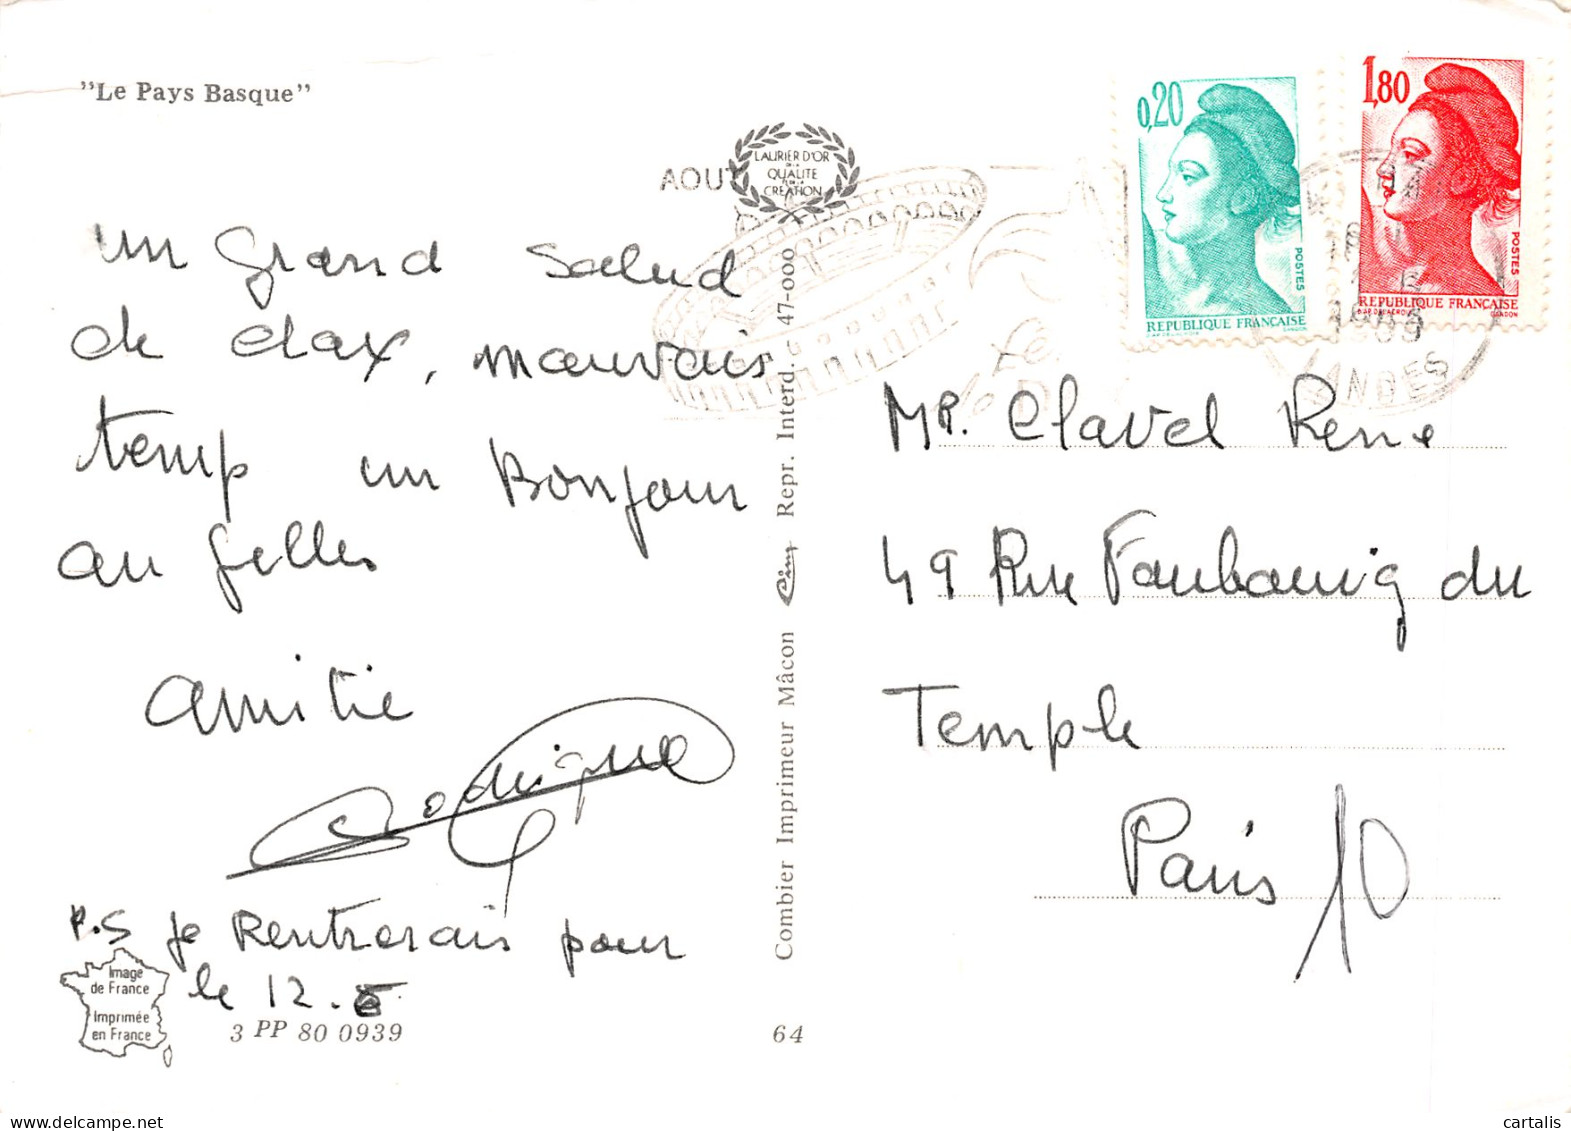 "Le Pays Basque"
AOUT
LAURIER D'OR
DE LA
QUALITÉ
CRÉATION
0,20
POSTES
REPUBLIQUE FRANÇAISE
1,80
POSTES
REPUBLIQUE FRANÇAISE
GANDON
LANDES
un grand salud
de dax, mauvais
temp un Bonjour
au gilles
amitie
Rodrigue
P.S je Rentrerais pour
le 12.
Mr. Clavel Rene
49 Rue Faubourig du
Temple
Paris 10
Combier Imprimeur Mâcon Cim Repr. Interd. 47-000
Image
de France
Imprimée
en France
3 PP 80 0939
64
cartalis
www.delcampe.net